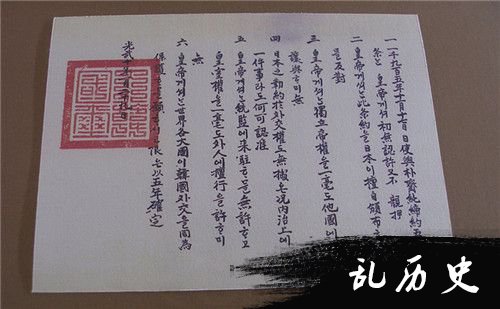 一 一千九百五年十一月十七日 使與朴齊純締約五
條은 皇帝게셔 初無認許又不 親押
二 皇帝게셔는 此條約을 日本이 擅自頒布
을 反對
三 皇帝게셔는 獨立帝權을 一毫도 他國에
讓與ᄒᆞ미 無
四 日本之勒約於外交權도 無據온 況內治上에
一件事라도 何可認准
五 皇帝게셔는 統監에 來駐ᄒᆞ믈 無許ᄒᆞ고
皇室權을 一毫도 外人에 擅行을 許ᄒᆞ미
無
六 皇帝게셔는 世界各大國이 韓國外交을 同爲
保護 願 限은 以五年確定
光武 年一月二十九日
乱历史